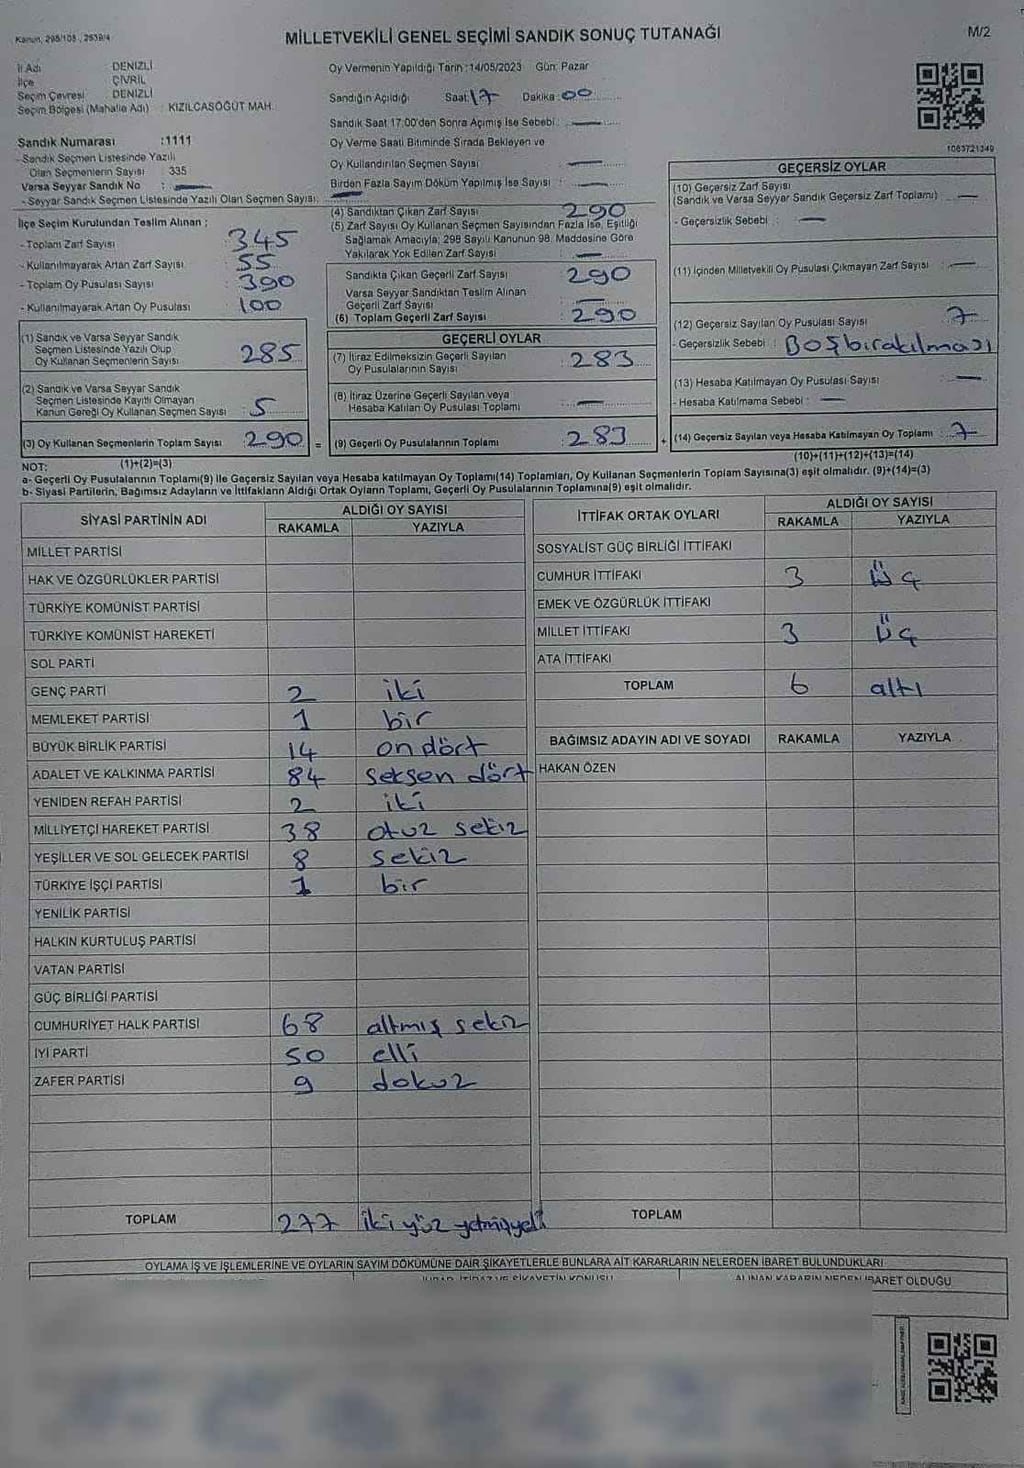 Kanun, 298/105 , 2839/4
MİLLETVEKİLİ GENEL SEÇİMİ SANDIK SONUÇ TUTANAĞI
M/2
İl Adı DENİZLİ
İlçe ÇİVRİL
Seçim Çevresi DENİZLİ
Seçim Bölgesi (Mahalle Adı) : KIZILCASÖĞÜT MAH.
Sandık Numarası :1111
- Sandık Seçmen Listesinde Yazılı
Olan Seçmenlerin Sayısı : 335
Varsa Seyyar Sandık No : —
- Seyyar Sandık Seçmen Listesinde Yazılı Olan Seçmen Sayısı: —
İlçe Seçim Kurulundan Teslim Alınan :
- Toplam Zarf Sayısı : 345
- Kullanılmayarak Artan Zarf Sayısı : 55
- Toplam Oy Pusulası Sayısı : 390
- Kullanılmayarak Artan Oy Pusulası : 100
(1) Sandık ve Varsa Seyyar Sandık
Seçmen Listesinde Yazılı Olup
Oy Kullanan Seçmenlerin Sayısı : 285
(2) Sandık ve Varsa Seyyar Sandık
Seçmen Listesinde Kayıtlı Olmayan
Kanun Gereği Oy Kullanan Seçmen Sayısı : 5
(3) Oy Kullanan Seçmenlerin Toplam Sayısı : 290 =
(1)+(2)=(3)
Oy Vermenin Yapıldığı Tarih :14/05/2023 Gün: Pazar
Sandığın Açıldığı Saat: 17 Dakika : 00
Sandık Saat 17:00'den Sonra Açımış İse Sebebi : —
Oy Verme Saati Bitiminde Sırada Bekleyen ve
Oy Kullandırılan Seçmen Sayısı : —
Birden Fazla Sayım Döküm Yapılmış İse Sayısı : —
(4) Sandıktan Çıkan Zarf Sayısı : 290
(5) Zarf Sayısı Oy Kullanan Seçmen Sayısından Fazla İse, Eşitliği
Sağlamak Amacıyla; 298 Sayılı Kanunun 98. Maddesine Göre
Yakılarak Yok Edilen Zarf Sayısı : —
Sandıkta Çıkan Geçerli Zarf Sayısı : 290
Varsa Seyyar Sandıktan Teslim Alınan
Geçerli Zarf Sayısı : —
(6) Toplam Geçerli Zarf Sayısı : 290
GEÇERLİ OYLAR
(7) İtiraz Edilmeksizin Geçerli Sayılan
Oy Pusulalarının Sayısı : 283
(8) İtiraz Üzerine Geçerli Sayılan veya
Hesaba Katılan Oy Pusulası Toplamı : —
(9) Geçerli Oy Pusulalarının Toplamı : 283 +
1083721349
GEÇERSİZ OYLAR
(10) Geçersiz Zarf Sayısı
(Sandık ve Varsa Seyyar Sandık Geçersiz Zarf Toplamı) : —
- Geçersizlik Sebebi : —
(11) İçinden Milletvekili Oy Pusulası Çıkmayan Zarf Sayısı : —
(12) Geçersiz Sayılan Oy Pusulası Sayısı : 7
- Geçersizlik Sebebi : Boş bırakılması
(13) Hesaba Katılmayan Oy Pusulası Sayısı : —
- Hesaba Katılmama Sebebi : —
(14) Geçersiz Sayılan veya Hesaba Katılmayan Oy Toplamı : 7
(10)+(11)+(12)+(13)=(14)
NOT:
a- Geçerli Oy Pusulalarının Toplamı(9) ile Geçersiz Sayılan veya Hesaba katılmayan Oy Toplamı(14) Toplamları, Oy Kullanan Seçmenlerin Toplam Sayısına(3) eşit olmalıdır. (9)+(14)=(3)
b- Siyasi Partilerin, Bağımsız Adayların ve İttifakların Aldığı Ortak Oyların Toplamı, Geçerli Oy Pusulalarının Toplamına(9) eşit olmalıdır.
SİYASİ PARTİNİN ADI ALDIĞI OY SAYISI
RAKAMLA YAZIYLA
MİLLET PARTİSİ
HAK VE ÖZGÜRLÜKLER PARTİSİ
TÜRKİYE KOMÜNİST PARTİSİ
TÜRKİYE KOMÜNİST HAREKETİ
SOL PARTİ
GENÇ PARTİ 2 iki
MEMLEKET PARTİSİ 1 bir
BÜYÜK BİRLİK PARTİSİ 14 on dört
ADALET VE KALKINMA PARTİSİ 84 seksen dört
YENİDEN REFAH PARTİSİ 2 iki
MİLLİYETÇİ HAREKET PARTİSİ 38 otuz sekiz
YEŞİLLER VE SOL GELECEK PARTİSİ 8 sekiz
TÜRKİYE İŞÇİ PARTİSİ 1 bir
YENİLİK PARTİSİ
HALKIN KURTULUŞ PARTİSİ
VATAN PARTİSİ
GÜÇ BİRLİĞİ PARTİSİ
CUMHURİYET HALK PARTİSİ 68 altmış sekiz
İYİ PARTİ 50 elli
ZAFER PARTİSİ 9 dokuz
TOPLAM 277 iki yüz yetmişyedi
İTTİFAK ORTAK OYLARI ALDIĞI OY SAYISI
RAKAMLA YAZIYLA
SOSYALİST GÜÇ BİRLİĞİ İTTİFAKI
CUMHUR İTTİFAKI 3 üç
EMEK VE ÖZGÜRLÜK İTTİFAKI
MİLLET İTTİFAKI 3 üç
ATA İTTİFAKI
TOPLAM 6 altı
BAĞIMSIZ ADAYIN ADI VE SOYADI RAKAMLA YAZIYLA
HAKAN ÖZEN
TOPLAM
OYLAMA İŞ VE İŞLEMLERİNE VE OYLARIN SAYIM DÖKÜMÜNE DAİR ŞİKAYETLERLE BUNLARA AİT KARARLARIN NELERDEN İBARET BULUNDUKLARI
İTİRAZ VE ŞİKAYETİN KONUSU ALINAN KARARIN NEDEN İBARET OLDUĞU